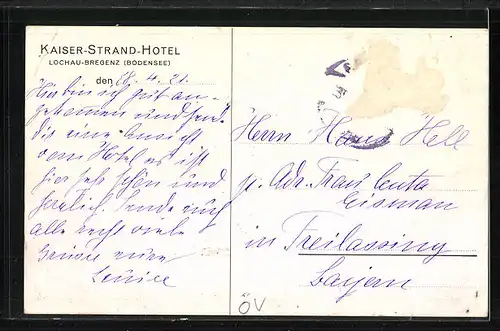 KAISER-STRAND-HOTEL
LOCHAU-BREGENZ (BODENSEE)
den 28. 4. 21.
Hier bin ich gut an-
gekommen und sende
dir eine Ansicht
vom Hotel es ist
hier sehr schön und
herzlich. sende euch
alle recht viele
Grüsse eure
Louise
Herrn Hans Hell
p. Adr. Frau Centa
Eisman
in Freilassing
Baijern
ÖV